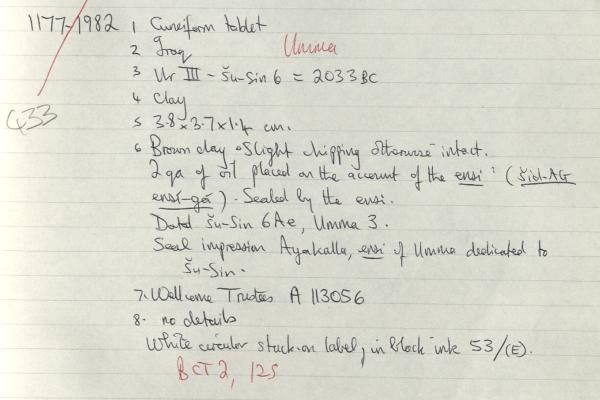 1177-1982 1 Cuneiform tablet
2 Iraq Umma
3 Ur III - Šu-Sin 6 = 2033 BC
4 Clay
433
5 3.8 x 3.7 x 1.4 cm.
6 Brown clay. Slight chipping otherwise intact.
2 qa of oil placed on the account of the ensi: (šid-AG
ensí-ga). Sealed by the ensi.
Dated Šu-Sin 6 Ae, Umma 3.
Seal impression Ayakalla, ensi of Umma dedicated to
Šu-Sin.
7. Wellcome Trustees A 113056
8. no details
White circular stuck-on label, in block ink 53/(E).
BCT 2, 125